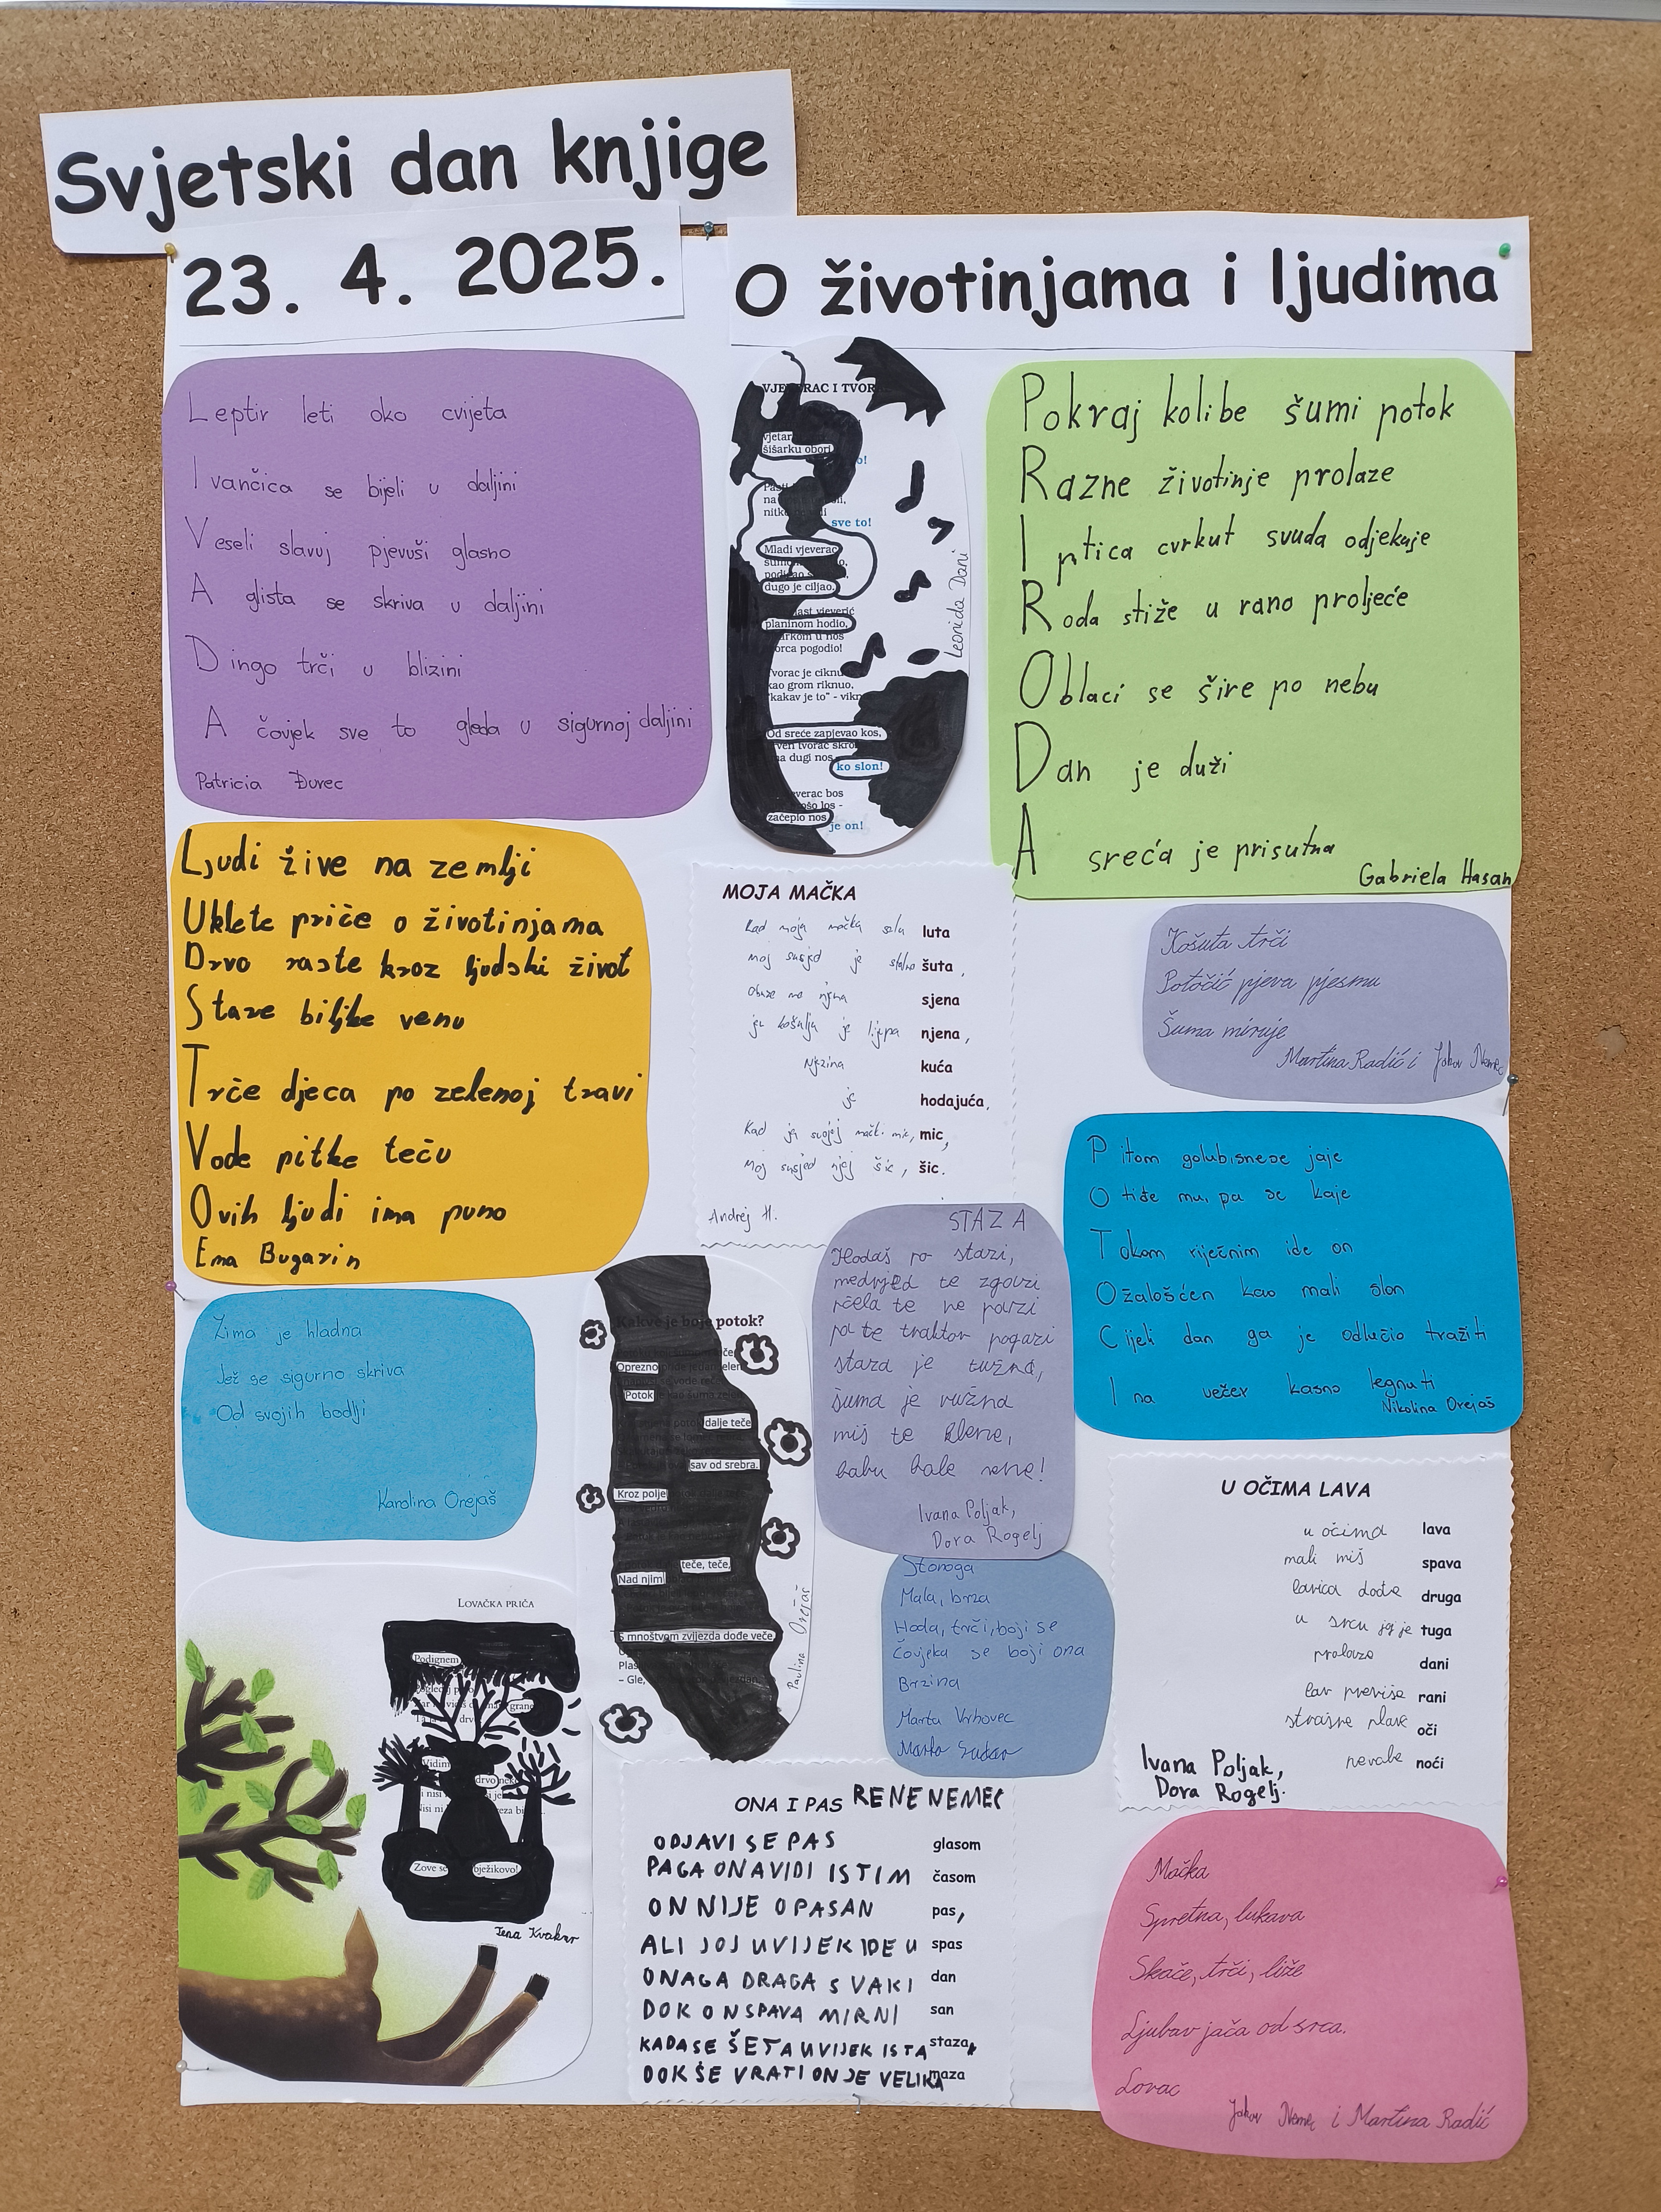 Svjetski dan knjige
23. 4. 2025.
O životinjama i ljudima
Leptir leti oko cvijeta
Ivančica se bijeli u daljini
Veseli slavuj pjevuši glasno
A glista se skriva u daljini
Dingo trči u blizini
A čovjek sve to gleda u sigurnoj daljini
Patricia Đurec
VJEVERAC I TVOR
vjetar
šišarku obori
o!
na
sve to!
Mladi vjeverac
dugo je ciljao.
ast vjeverić
planinom hodio,
u nos
orca pogodio!
Tvorac je ciknu
kao grom riknuo,
"kakav je to" - vikn
Od sreće zapjevao kos,
tvorac skro
na dugi nos
ko slon!
everac bos
ošo los -
začepio nos
je on!
Leonida Dani
Pokraj kolibe šumi potok
Razne životinje prolaze
I ptica cvrkut svuda odjekuje
Roda stiže u rano proljeće
Oblaci se šire po nebu
Dan je duži
A sreća je prisutna
Gabriela Hasan
Ljudi žive na zemlji
Uklete priče o životinjama
Drvo raste kroz ljudski život
Stare biljke venu
Trče djeca po zelenoj travi
Vode pitke teču
Ovih ljudi ima puno
Ema Bugarin
MOJA MAČKA
Kad moja mačka luta
moj susjed je šuta,
sjena
košulja je lijepa njena,
Njezina kuća
je hodajuća,
Kad ja svojoj mački mic, mic,
Moj susjed njoj šic, šic.
Andrej H.
Košuta trči
Potočić pjeva pjesmu
Šuma miruje
Martina Radić i Jakov Nemec
Pitom golubisnese jaje
Otiđe mu, pa se kaje
Tokom riječnim ide on
Ožalošćen kao mali slon
Cijeli dan ga je odlučio tražiti
I na večer kasno legnuti
Nikolina Orejaš
STAZA
Hodaš po stazi,
medvjed te zgazi
pčela te ne pazi
pa te traktor pogazi
staza je tužna,
šuma je ružna
miš te klene,
babu bole vene!
Ivana Poljak,
Dora Rogelj
Zima je hladna
Jež se sigurno skriva
Od svojih bodlji
Karolina Orejaš
Kakve je boje potok?
Oprezno
Potok kao šuma
dalje teče
sav od srebra.
Kroz polje
teče, teče,
Nad njim!
S mnoštvom zvijezda dođe veče
Plas
– Gle,
Paulina Orejaš
U OČIMA LAVA
u očima lava
mali miš spava
lavica dođe druga
u srcu joj je tuga
prolaze dani
lav previše rani
strašne plave oči
noći
Ivana Poljak,
Dora Rogelj.
Stonoga
Mala, brza
Hoda, trči, boji se
Čovjeka se boji ona
Brzina
Marta Vrhovec
Marko
LOVAČKA PRIČA
Podignem
grane
Vidim
drvo neko
Zove se
bježikovo!
Jena Kvakar
ONA I PAS RENE NEMEC
ODJAVI SE PAS glasom
PAGA ONA VIDI ISTIM časom
ON NIJE OPASAN pas,
ALI JOJ UVIJEK IDE U spas
ONAGA DRAGA SVAKI dan
DOK ON SPAVA MIRNI san
KADA SE ŠETA UVIJEK ISTA staza,
DOK SE VRATI ON JE VELIKA maza
Mačka
Spretna, lukava
Skače, trči, liže
Ljubav jača od srca.
Lovac
Jakov Nemec i Martina Radić